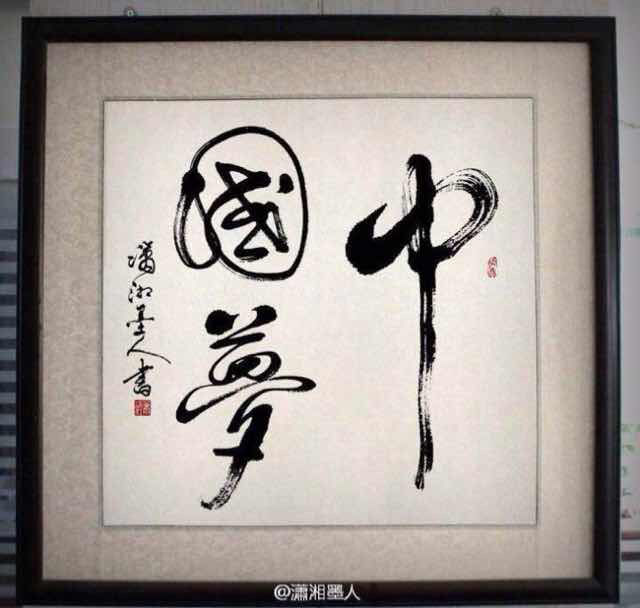 中
國夢
瀟湘墨人書
@瀟湘墨人